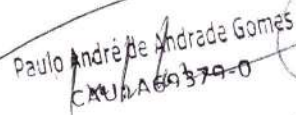 Paulo André de Andrade Gomes
CAU nº A69379-0